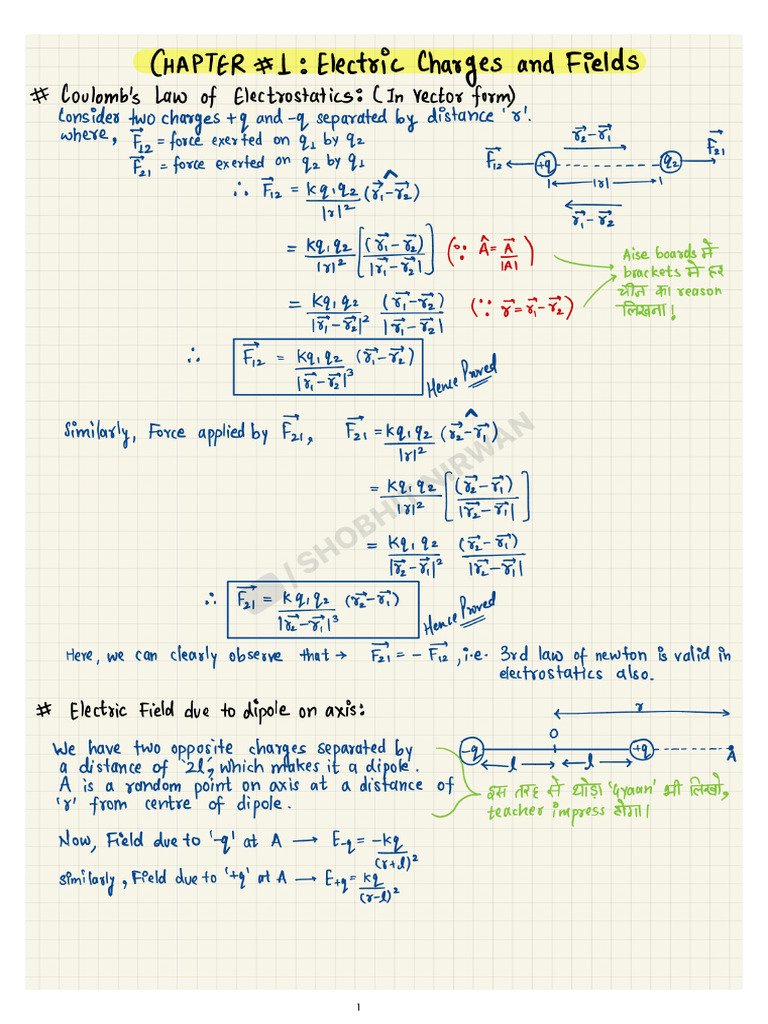 CHAPTER #1: Electric Charges and Fields
# Coulomb's Law of Electrostatics: (In vector form)
Consider two charges +q and -q separated by distance 'r'.
where, F⃗₁₂ = force exerted on q₁ by q₂
F⃗₂₁ = force exerted on q₂ by q₁
r⃗₂-r⃗₁
F⃗₁₂ +q q₂ F⃗₂₁
|r|
r⃗₁-r⃗₂
∴ F⃗₁₂ = kq₁q₂/|r|² (r⃗₁-r⃗₂)^
= kq₁q₂/|r|² [(r⃗₁-r⃗₂)/|r⃗₁-r⃗₂|] (∵ Â = A⃗/|A|)
Aise boards में
brackets में हर
चीज का reason
लिखना!
= Kq₁q₂/|r⃗₁-r⃗₂|² (r⃗₁-r⃗₂)/|r⃗₁-r⃗₂| (∵ r⃗ = r⃗₁-r⃗₂)
∴ F⃗₁₂ = Kq₁q₂/|r⃗₁-r⃗₂|³ (r⃗₁-r⃗₂)
Hence Proved
Similarly, Force applied by F⃗₂₁, F⃗₂₁ = kq₁q₂/|r|² (r⃗₂-r⃗₁)^
= kq₁q₂/|r|² [(r⃗₂-r⃗₁)/|r⃗₂-r⃗₁|]
= Kq₁q₂/|r⃗₂-r⃗₁|² (r⃗₂-r⃗₁)/|r⃗₂-r⃗₁|
∴ F⃗₂₁ = Kq₁q₂/|r⃗₂-r⃗₁|³ (r⃗₂-r⃗₁)
Hence Proved
/ SHOBHIT NIRWAN
Here, we can clearly observe that → F⃗₂₁ = - F⃗₁₂, i.e. 3rd law of newton is valid in
electrostatics also.
# Electric Field due to dipole on axis:
r
O
-q +q A
l l
We have two opposite charges separated by
a distance of '2l', which makes it a dipole.
A is a random point on axis at a distance of
'r' from centre of dipole.
इस तरह से थोड़ा 'Gyaan' भी लिखो,
teacher impress होगा।
Now, Field due to '-q' at A → E₋q = -kq/(r+l)²
similarly, Field due to '+q' at A → E₊q = kq/(r-l)²
1